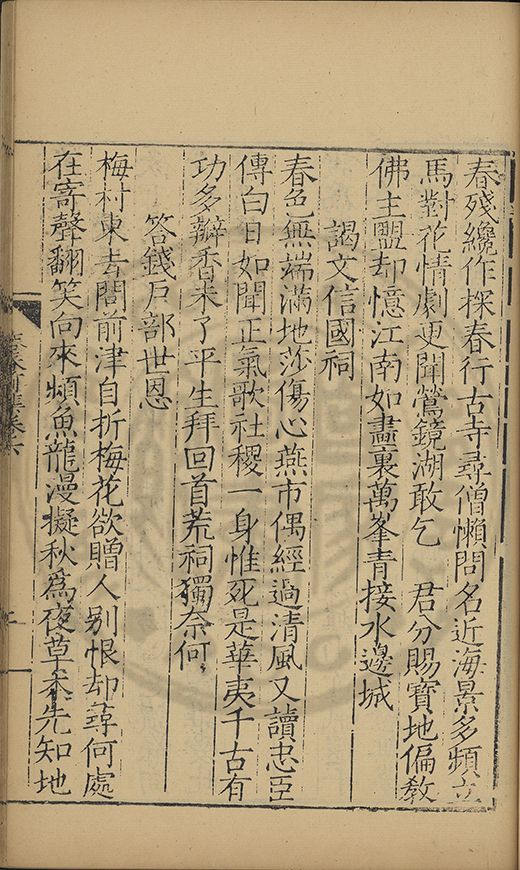 春殘纔作探春行古寺尋僧懶問名近海景多頻立
馬對花情劇更聞鶯鏡湖敢乞　君分賜寶地偏教
佛主盟却憶江南如畫裏萬峯青接水邊城
謁文信國祠
春色無端滿地莎傷心燕市偶經過清風又讀忠臣
傳白日如聞正氣歌社稷一身惟死是華夷千古有
功多瓣香未了平生拜回首荒祠獨奈何
答錢戶部世恩
梅村東去問前津自折梅花欲贈人别恨却尋何處
在寄聲翻笑向來頻魚龍漫擬秋爲夜草木先知地
集卷六